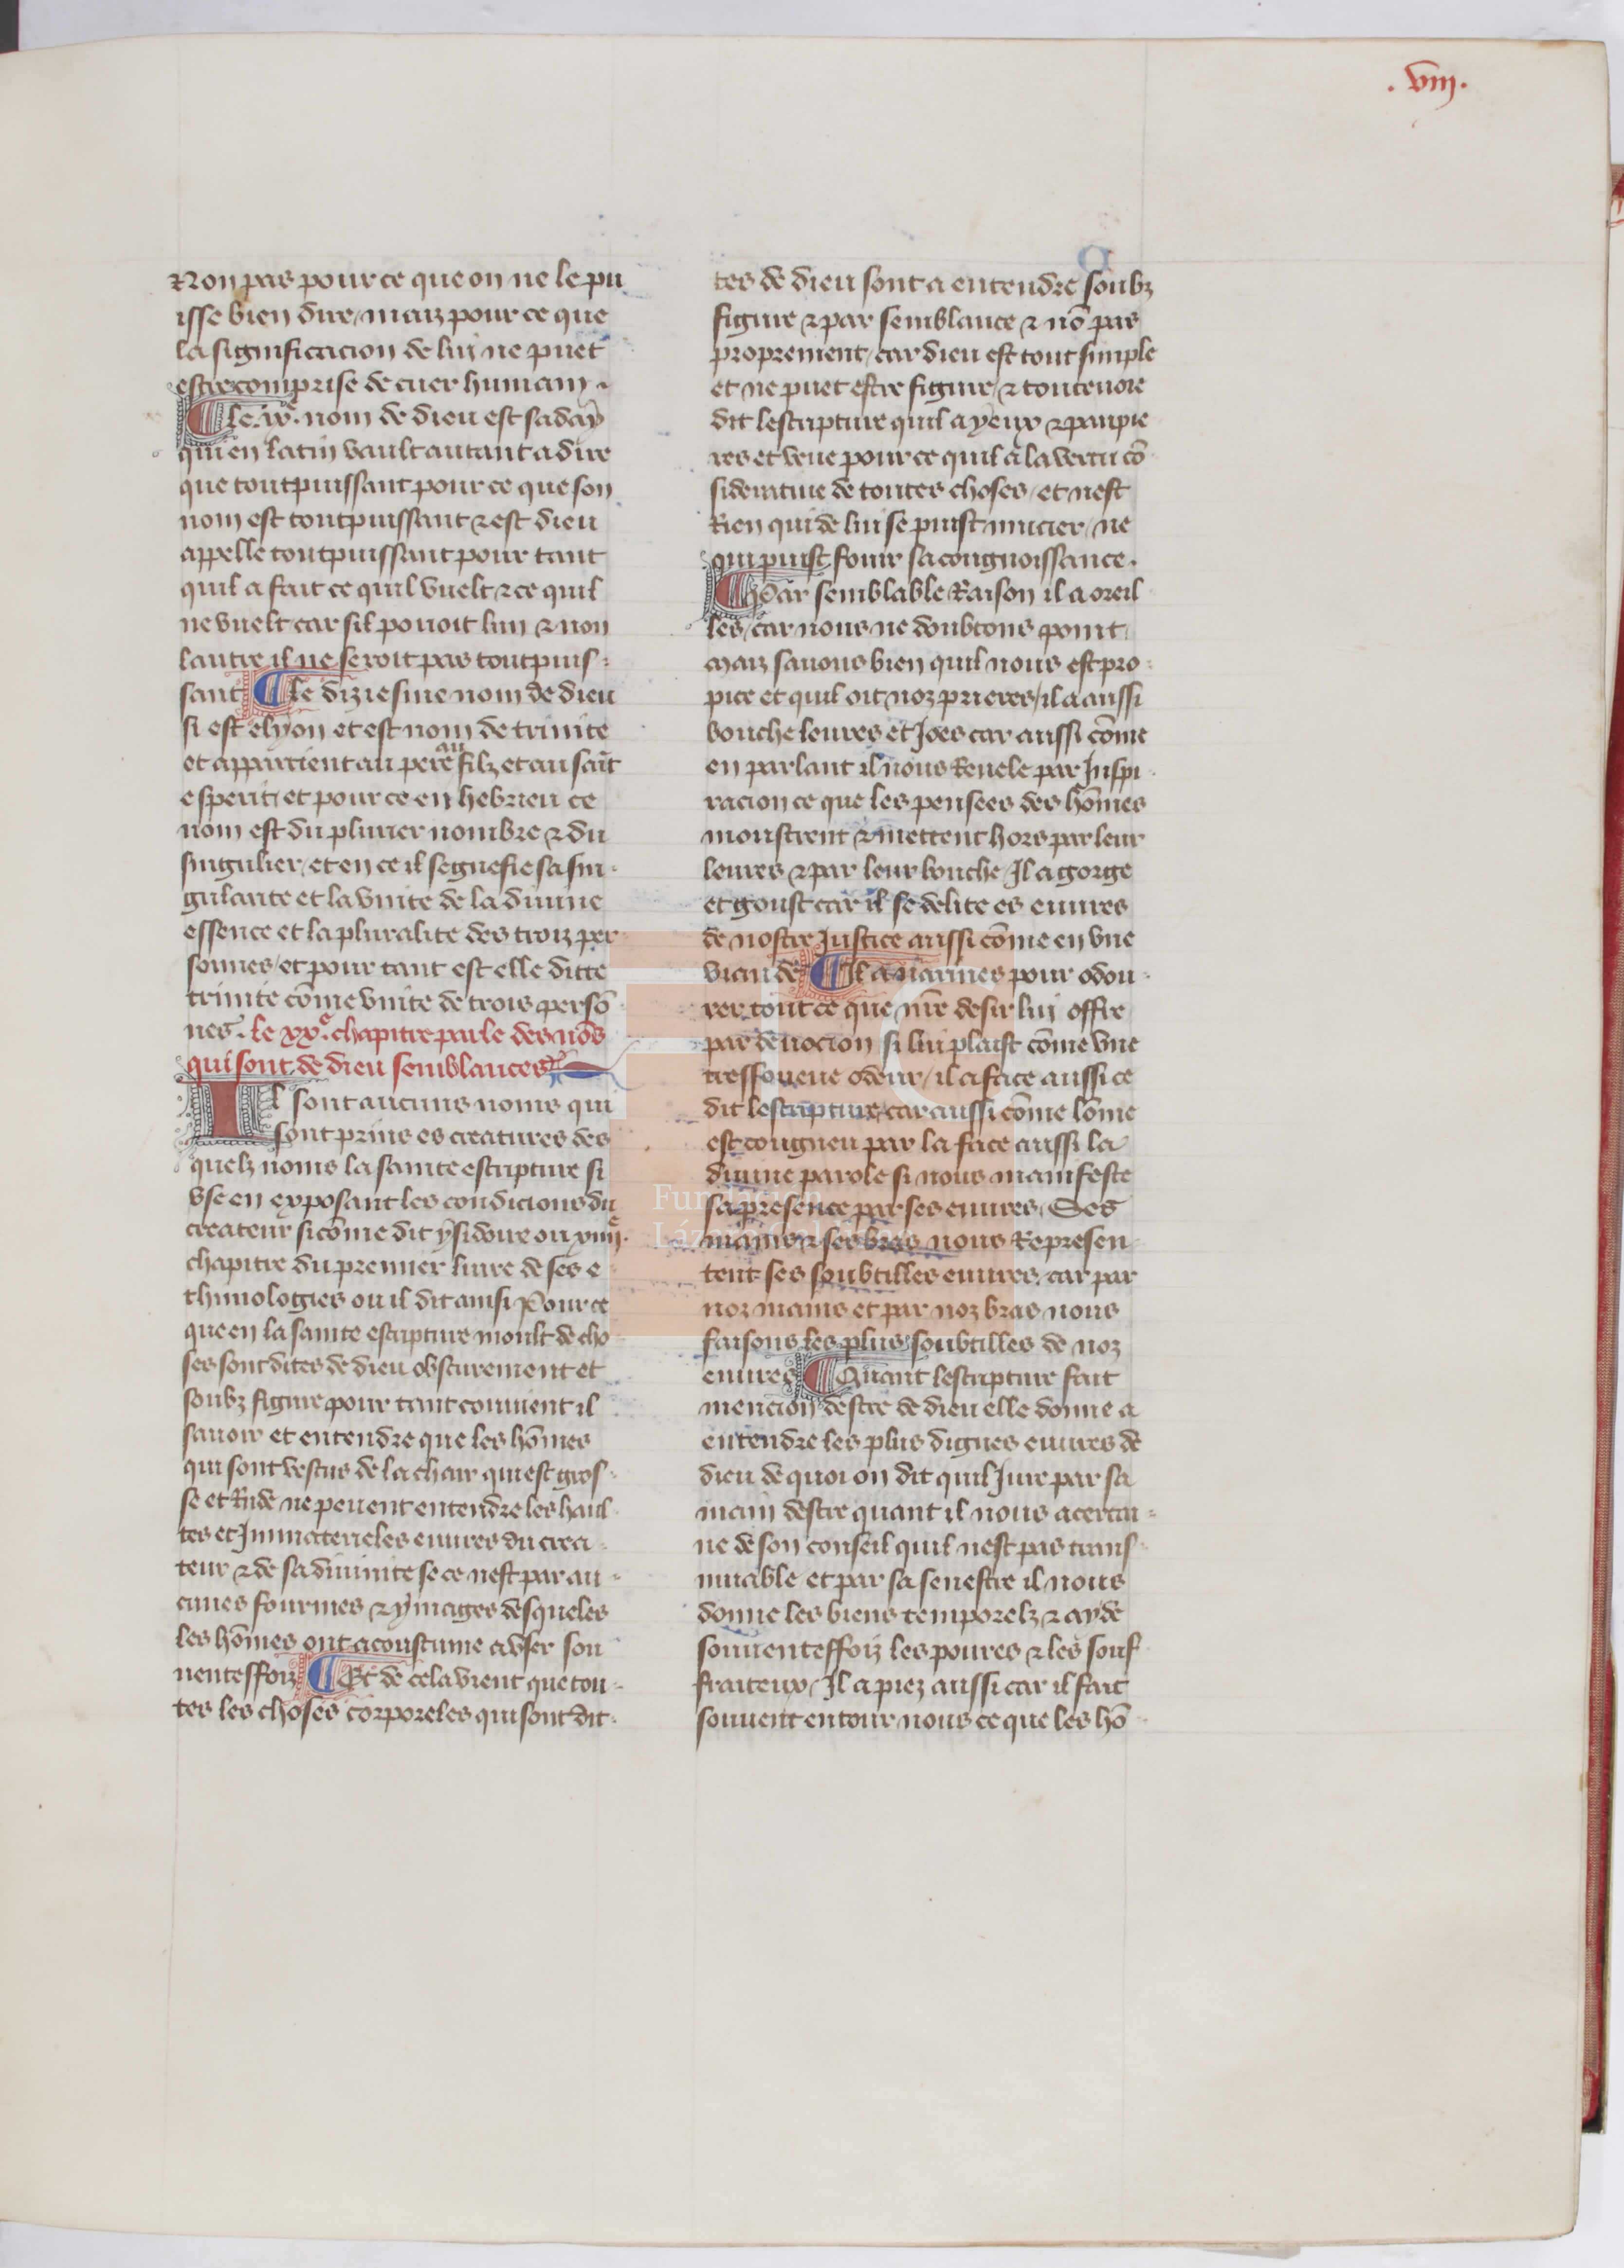 .viij.
Non pas pour ce que on ne le pu
isse bien dire / maiz pour ce que
la significacion de lui ne puet
estre comprise de cuer humain.
le .ixe. nom de dieu est saday
qui en latin vault autant a dire
que toutpuissant pour ce que son
nom est toutpuissant ⁊ est dieu
appelle toutpuissant pour tant
quil a fait ce quil vuelt ⁊ ce quil
ne vuelt car sil pouoit lun ⁊ non
lautre il ne seroit pas toutpuis-
sant le diziesme nom de dieu
si est elyon et est nom de trinite
et appartient au pere au filz et au sait̄
esperit / et pour ce en hebrieu ce
nom est du plurier nombre ⁊ du
singulier / et en ce il segnefie sa sin-
gularite et la vnite de la diuine
essence et la pluralite des troiz per
sonnes / et pour tant est elle ditte
trinite cōme vnite de trois persō
nes. le xxe. chapitre parle des nōs
qui sont de dieu semblances
Il sont aucuns noms qui
sont prins es creatures des
quelz noms la sainte escripture si
vse en exposant les condicions du
createur si cōme dit ysidoire ou xiiije.
chapitre du premier liure de ses e
thimologies ou il dit ainsi Pour ce
que en la sainte escripture moult de cho
ses sont dites de dieu obscurement et
soubz figure pour tant conuient il
sauoir et entendre que les hōmes
qui sont vestus de la chair qui est gros-
se et Rude ne peuent entendre les haul
tes et Immaterieles euures du crea-
teur ⁊ de sa diuinite se ce nest par au-
cunes fourmes ⁊ ymages desqueles
les hōmes ont acoustume a vser sou
uenteffoiz Et de cela vient que tou-
tes les choses corporeles qui sont dit-
tes de dieu sont a entendre soubz
figure ⁊ par semblance ⁊ nō pas
proprement / car dieu est tout simple
et ne puet estre figure / ⁊ toutenoie
dit lescripture quil a yeux ⁊ paupie
res et veue pour ce quil a la vertu cō
sideratiue de toutes choses / et nest
Rien qui de lui se puist mucier / ne
qui puist fouir sa congnoissance.
Par semblable Raison il a oreil
les / car nous ne doubtons point
maiz sauons bien quil nous est pro-
pice et quil oit noz prieres / il a aussi
bouche leures et Joes car aussi cōme
en parlant il nous Reuele par Inspi-
racion ce que les pensees des hōmes
monstrent ⁊ mettent hors par leur
leures ⁊ par leur bouche / Il a gorge
et goust car il se delite es euures
de nostre Justice aussi cōme en vne
viande Il a narines pour odou-
rer tout ce que nr̄e desir lui offre
par deuocion si lui plaist cōme vne
tressoueue odeur / il a face aussi ce
dit lescripture / car aussi cōme lōme
est congneu par la face aussi la
diuine parole si nous manifeste
sa presence par ses euures / Ses
mains ⁊ ses bras nous Represen
tent ses soubtilles euures. car par
noz mains et par noz bras nous
faisons les plus soubtilles de noz
euures Quant lescripture fait
mencion destre de dieu elle donne a
entendre les plus dignes euures de
dieu de quoi on dit quil Jure par sa
main destre quant il nous acertai-
ne de son conseil quil nest pas trans-
muable et par sa senestre il nous
donne les biens temporelz ⁊ ayde
souuenteffoiz les poures ⁊ les souf
fraiteux / Il a piez aussi car il fait
souuent entour nous ce que les hō